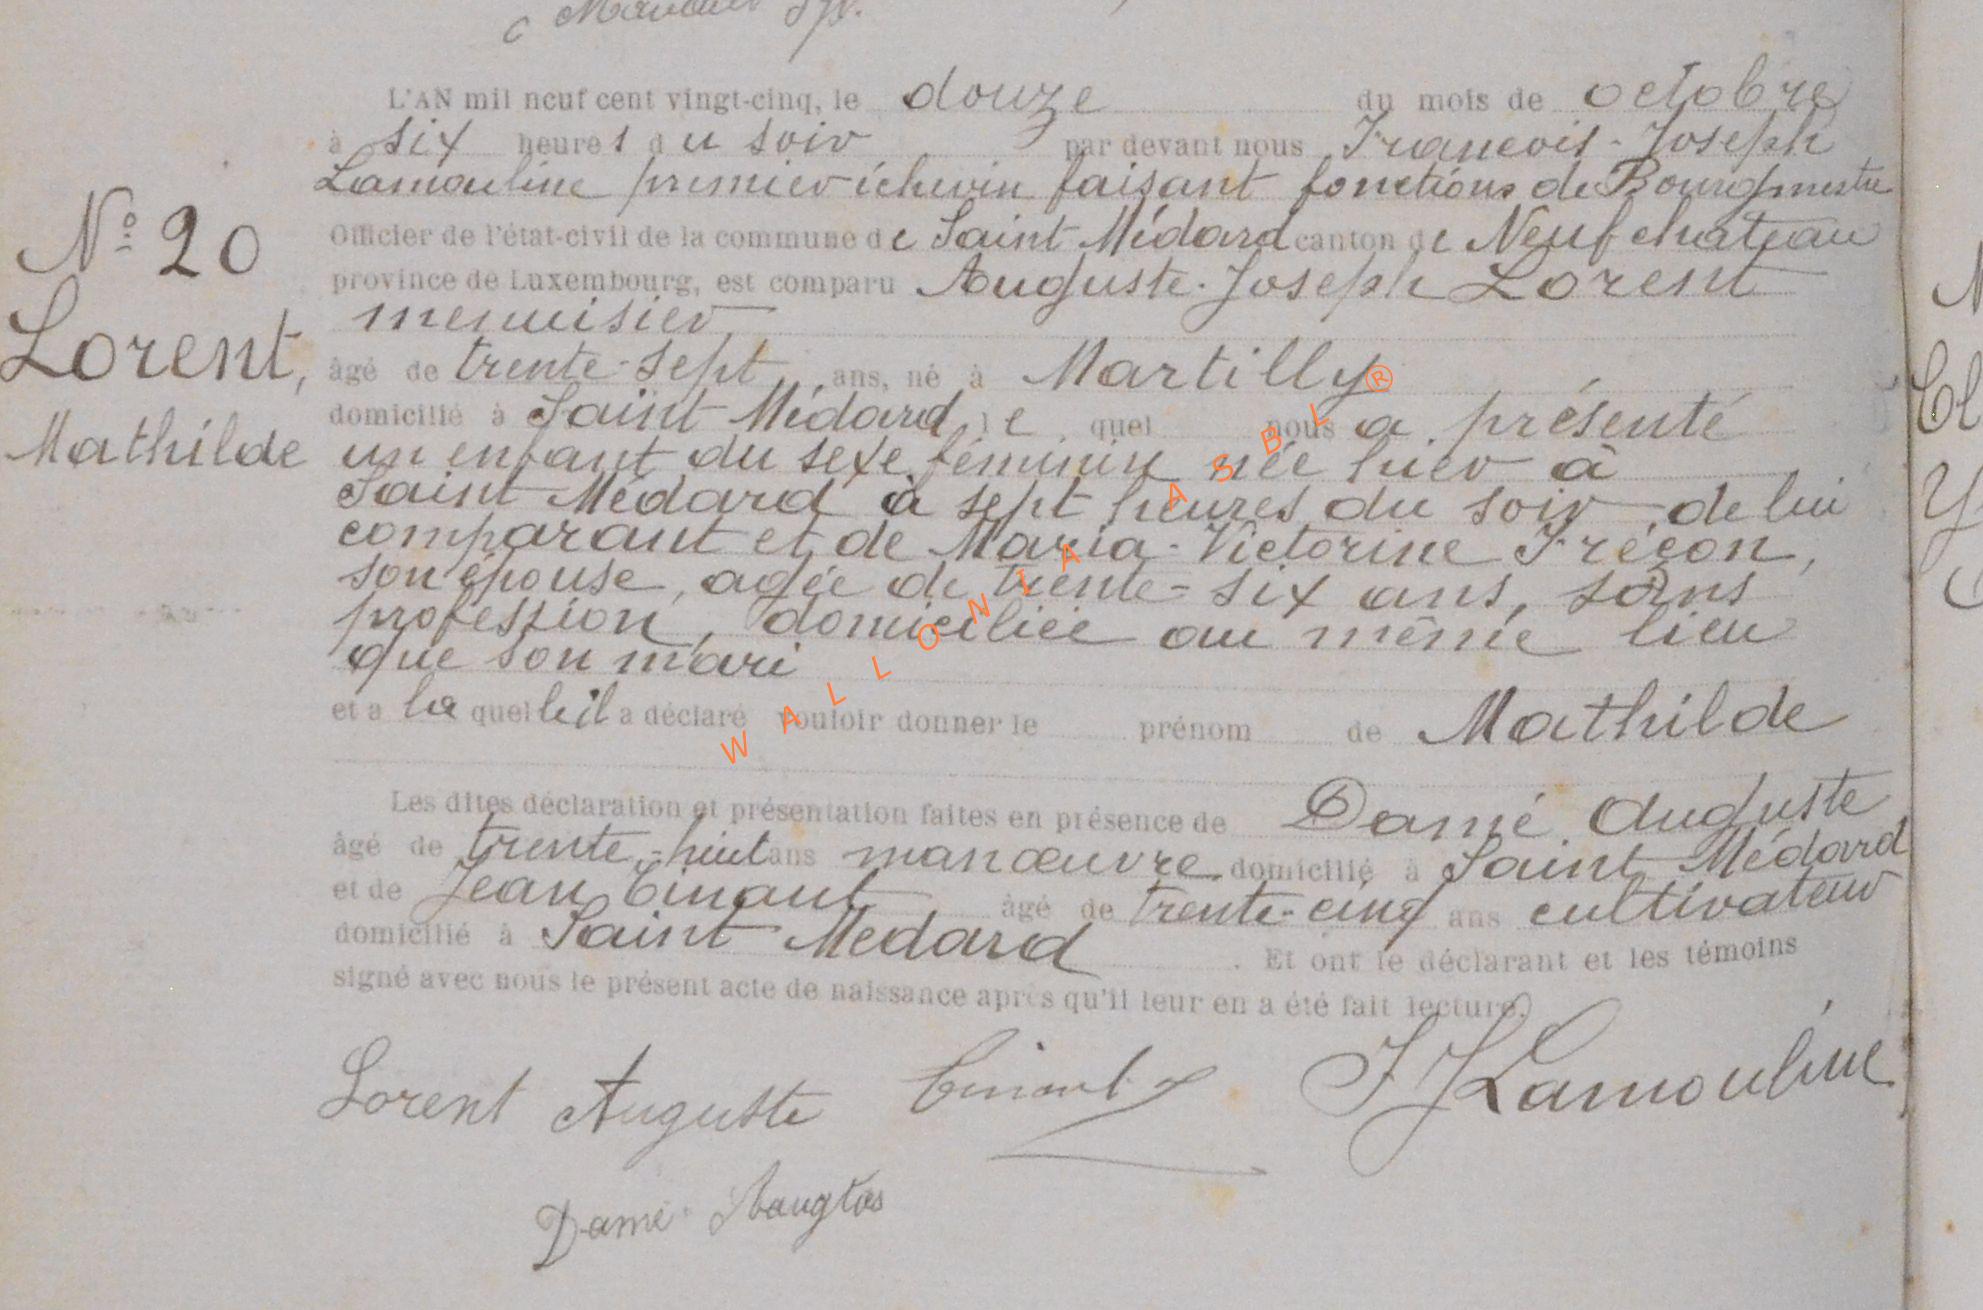 L'AN mil neuf cent vingt-cinq, le douze du mois de octobre
à six heures du soir par devant nous François-Joseph
Lamouline premier échevin faisant fonctions de Bourgmestre
Officier de l'état-civil de la commune de Saint Médard canton de Neufchateau
province de Luxembourg, est comparu Auguste-Joseph Lorent
menuisier
âgé de trente-sept ans, né à Martilly
domicilié à Saint Médard, lequel nous a présenté
un enfant du sexe féminin née hier à
Saint Médard à sept heures du soir, de lui
comparant et de Maria-Victorine Freçon,
son épouse, agée de trente-six ans, sans
profession, domiciliée au même lieu
que son mari
et a laquelle il a déclaré vouloir donner le prénom de Mathilde
Les dites déclaration et présentation faites en présence de Damé Auguste
âgé de trente-huit ans manœuvre domicilié à Saint Médard
et de Jean Tinant âgé de trente-cinq ans cultivateur
domicilié à Saint Medard. Et ont le déclarant et les témoins
signé avec nous le présent acte de naissance après qu'il leur en a été fait lecture.
N° 20
Lorent,
Mathilde
Lorent Auguste
FJ Lamouline
Damé
WALLONIA ASBL®